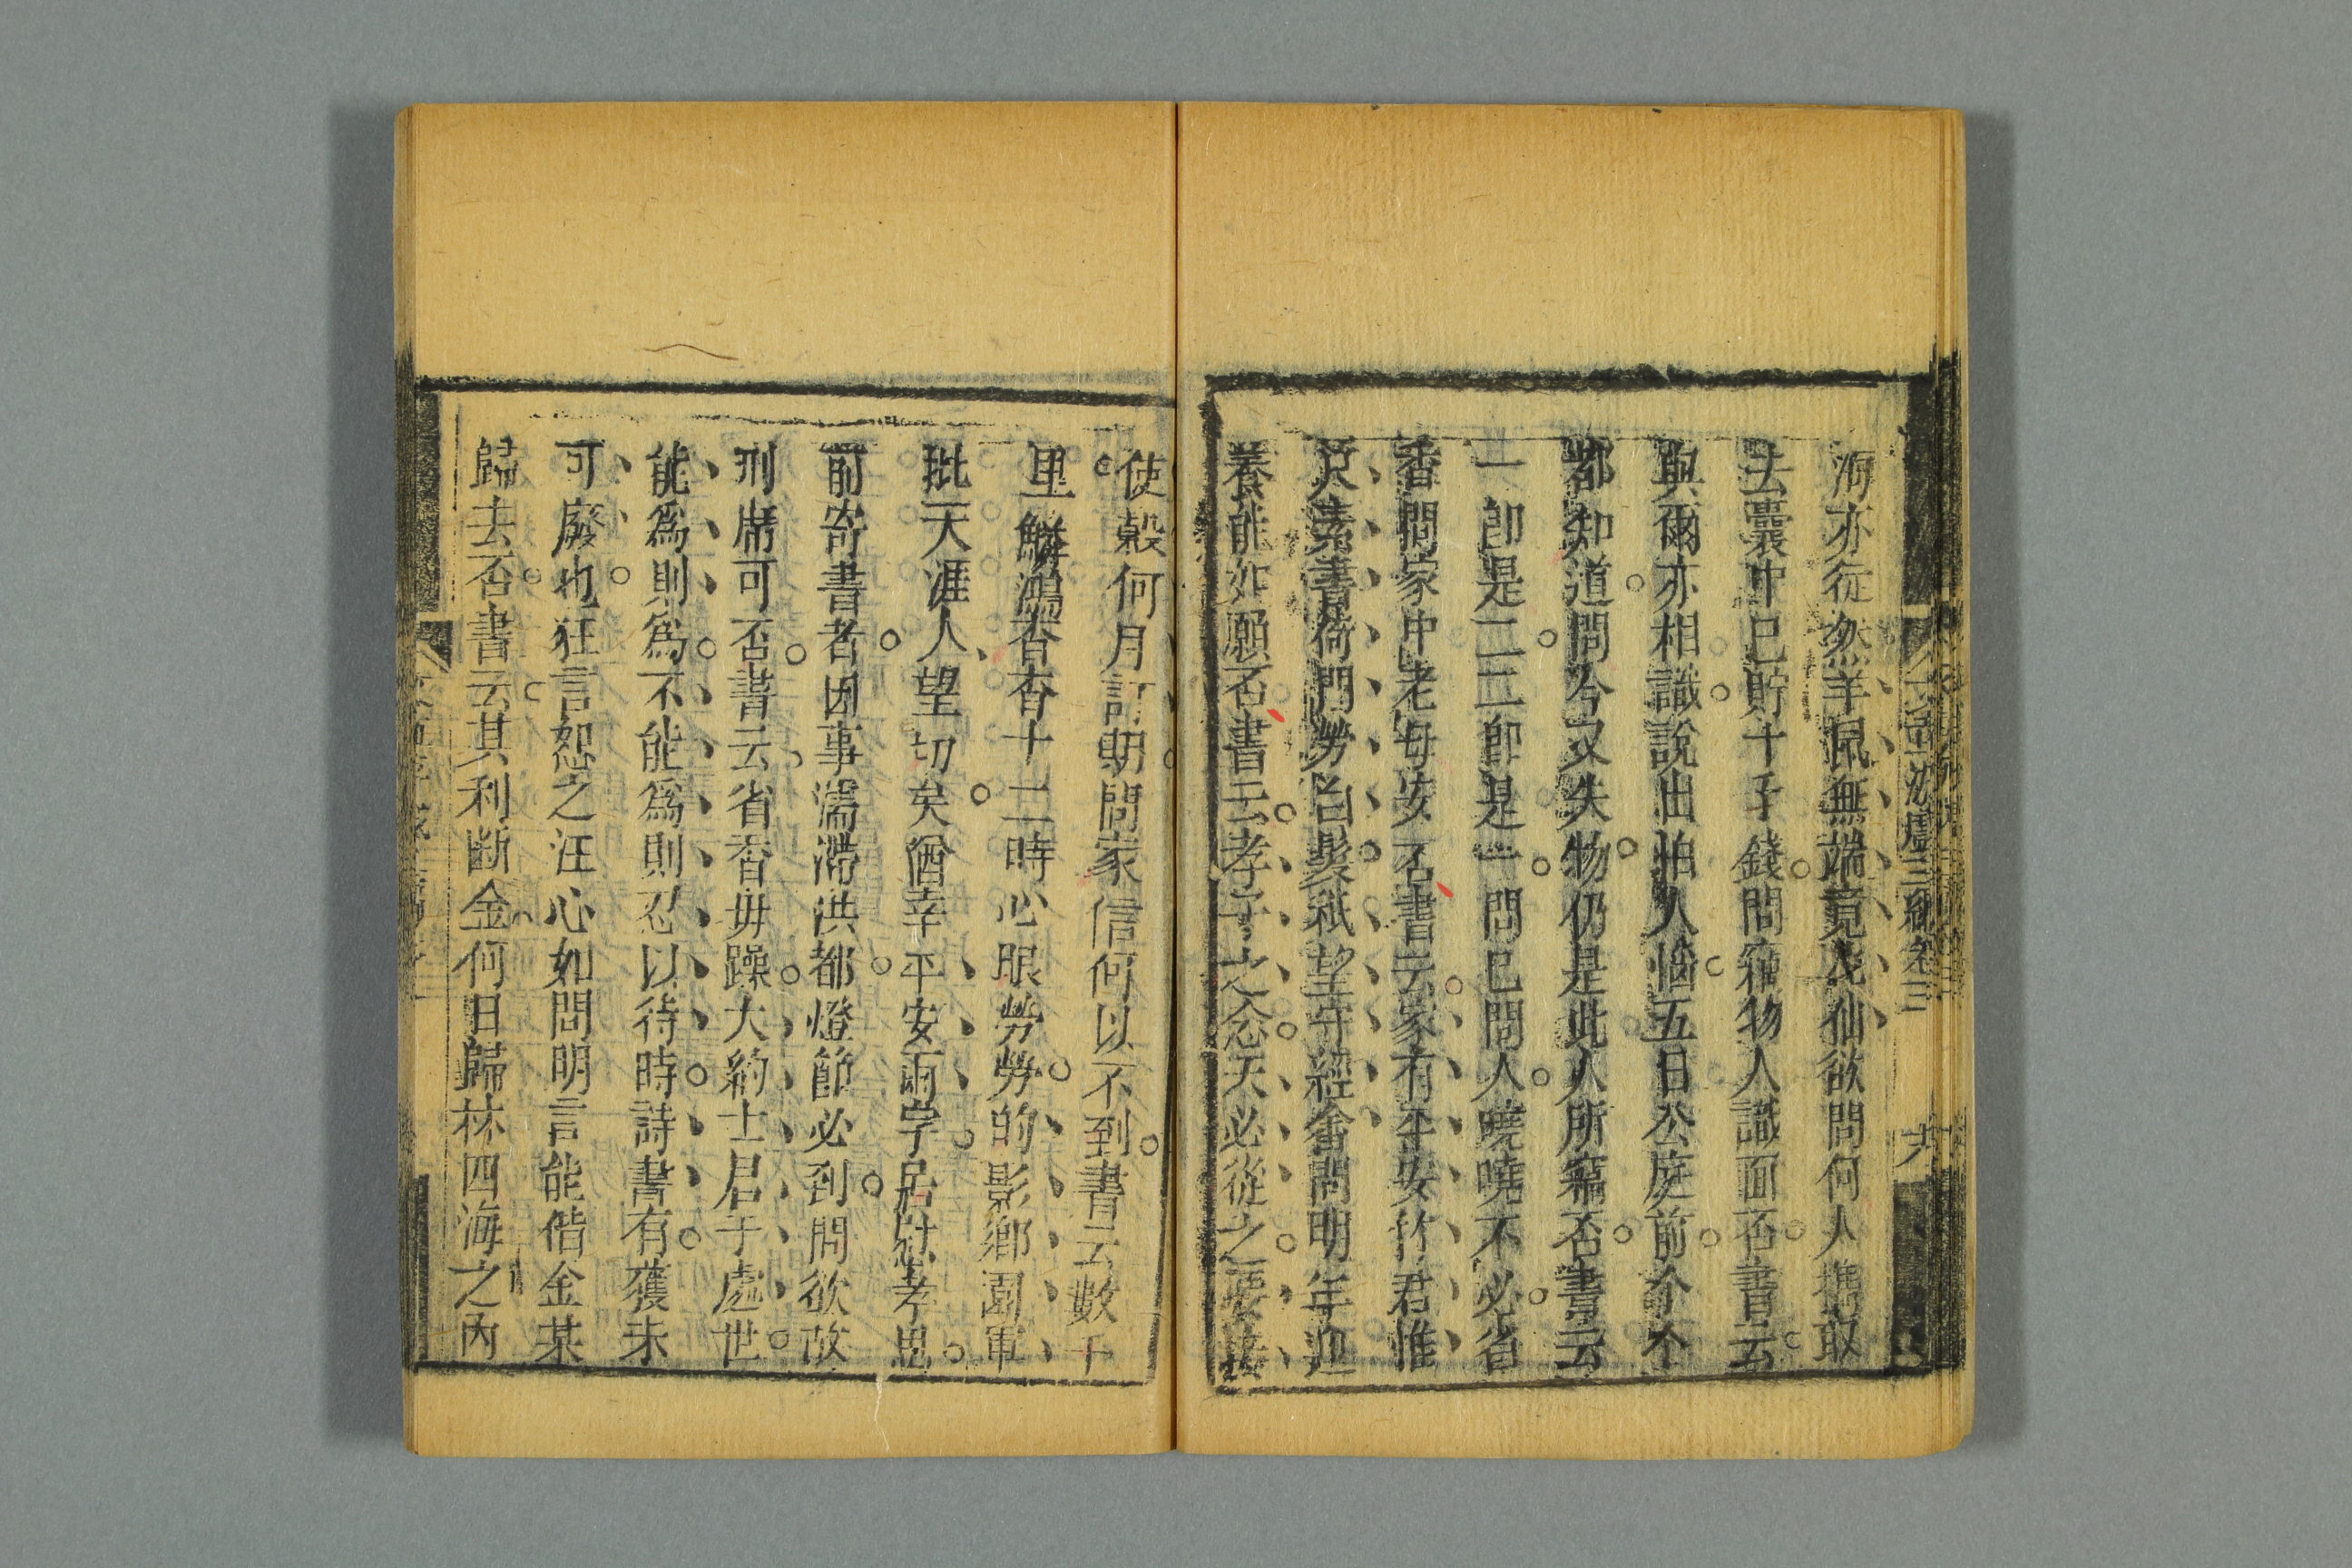 洞亦從然羊鼠無端竟戍仙欲問何人攜取
去囊中已貯十千錢問竊物人識面否書云
與爾亦相識說出怕人惱五日公庭前个个
都知道問今又失物仍是此人所竊否書云
一卽是二二卽是一問已問人曉曉不必省
香問家中老母安否書云家有平安竹君惟
尺素書倚門勞白髮秖望守經畬問明年迎
養能如願否書云孝子之念天必從之要接
使穀何月訂期問家信何以不到書云數千
里鱗鴻杳杳十二時心眼勞勞的影鄉園軍
批天涯人望切矣酋幸平安兩字居慰孝思
前寄書者因事濡滯洪都燈節必到問欲改
刑席可否書云省香毋躁大約士君子處世
能爲則爲不能爲則忍以待時詩書有獲未
可廢也狂言恕之汪心如問明言能偕金某
歸去否書云其利斷金何日歸林四海之內